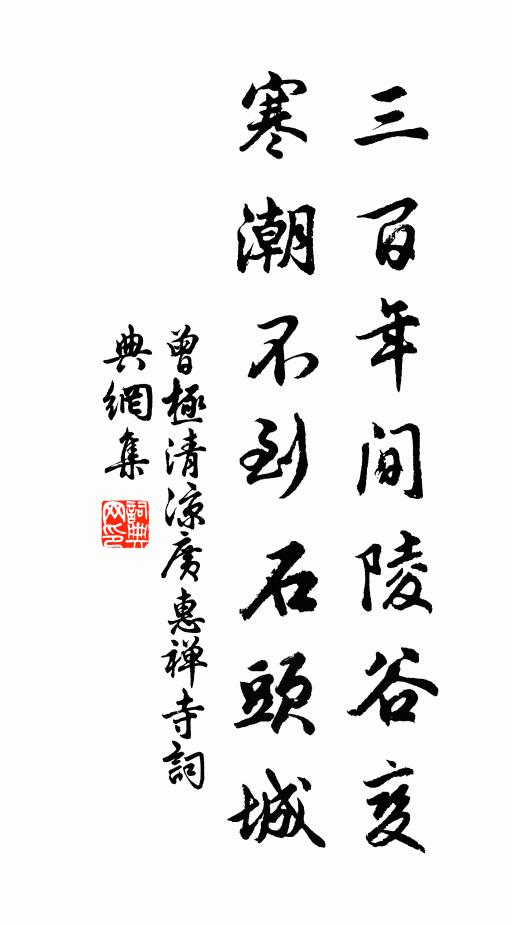 三百年间陵谷变
寒潮不到石頭城
曾極清凉廣惠禅寺詞
典網集
詞典
网印